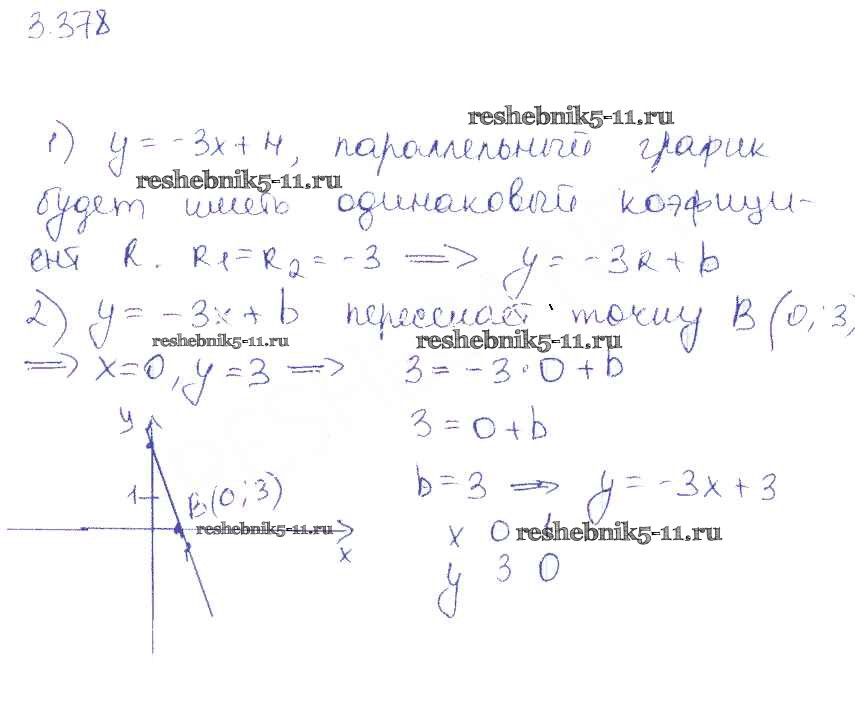 3.378
reshebnik5-11.ru
1) y = -3x + 4, параллельный график
reshebnik5-11.ru
будет иметь одинаковый коэфици-
ент k. k1 = k2 = -3 => y = -3k + b
2) y = -3x + b пересекает точку B(0; 3)
reshebnik5-11.ru reshebnik5-11.ru
=> x=0, y=3 => 3 = -3 · 0 + b
y 3 = 0 + b
1 B(0; 3) b = 3 => y = -3x + 3
reshebnik5-11.ru x 0 1 reshebnik5-11.ru
x 1
y 3 0